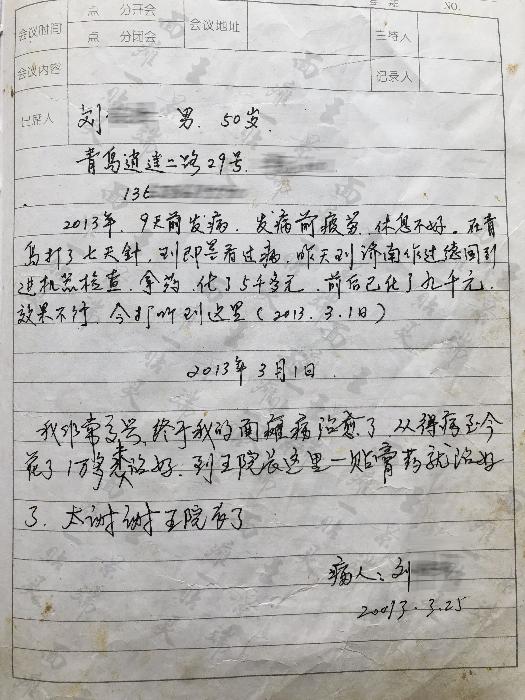 点 分开会
会议时间
点 分团会
会议地址
主持人
NO.
会议内容
记录人
出席人
刘
男. 50岁.
青岛逍遥二路29号.
136
2013年. 9天前发病. 发病前疲劳. 休息不好. 在青
岛打了七天针. 到即墨看过病. 昨天到济南作过德国引
进机器检查. 拿药. 化了5千多元. 前后已化了九千元.
效果不行. 今打听到这里(2013.3.1日)
2013年3月1日
我非常高兴, 终于我的面瘫病治愈了. 从得病至今
花了1万多 治好. 到王院长这里一贴膏药就治好
了. 太谢谢王院长了
病人: 刘
2013.3.25